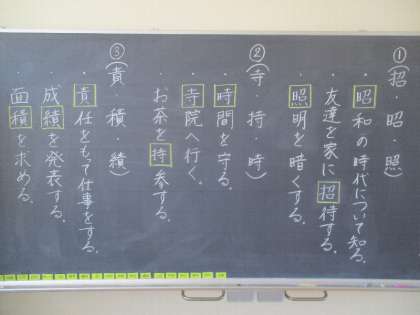 ①(招・昭・照)
・昭和の時代について知る。
・友達を家に招待する。
・照明を暗くする。
②(寺・持・時)
・時間を守る。
・寺院へ行く。
・お茶を持参する。
③(責 積 績)
・責任をもって仕事をする。
・成績を発表する。
・面積を求める。